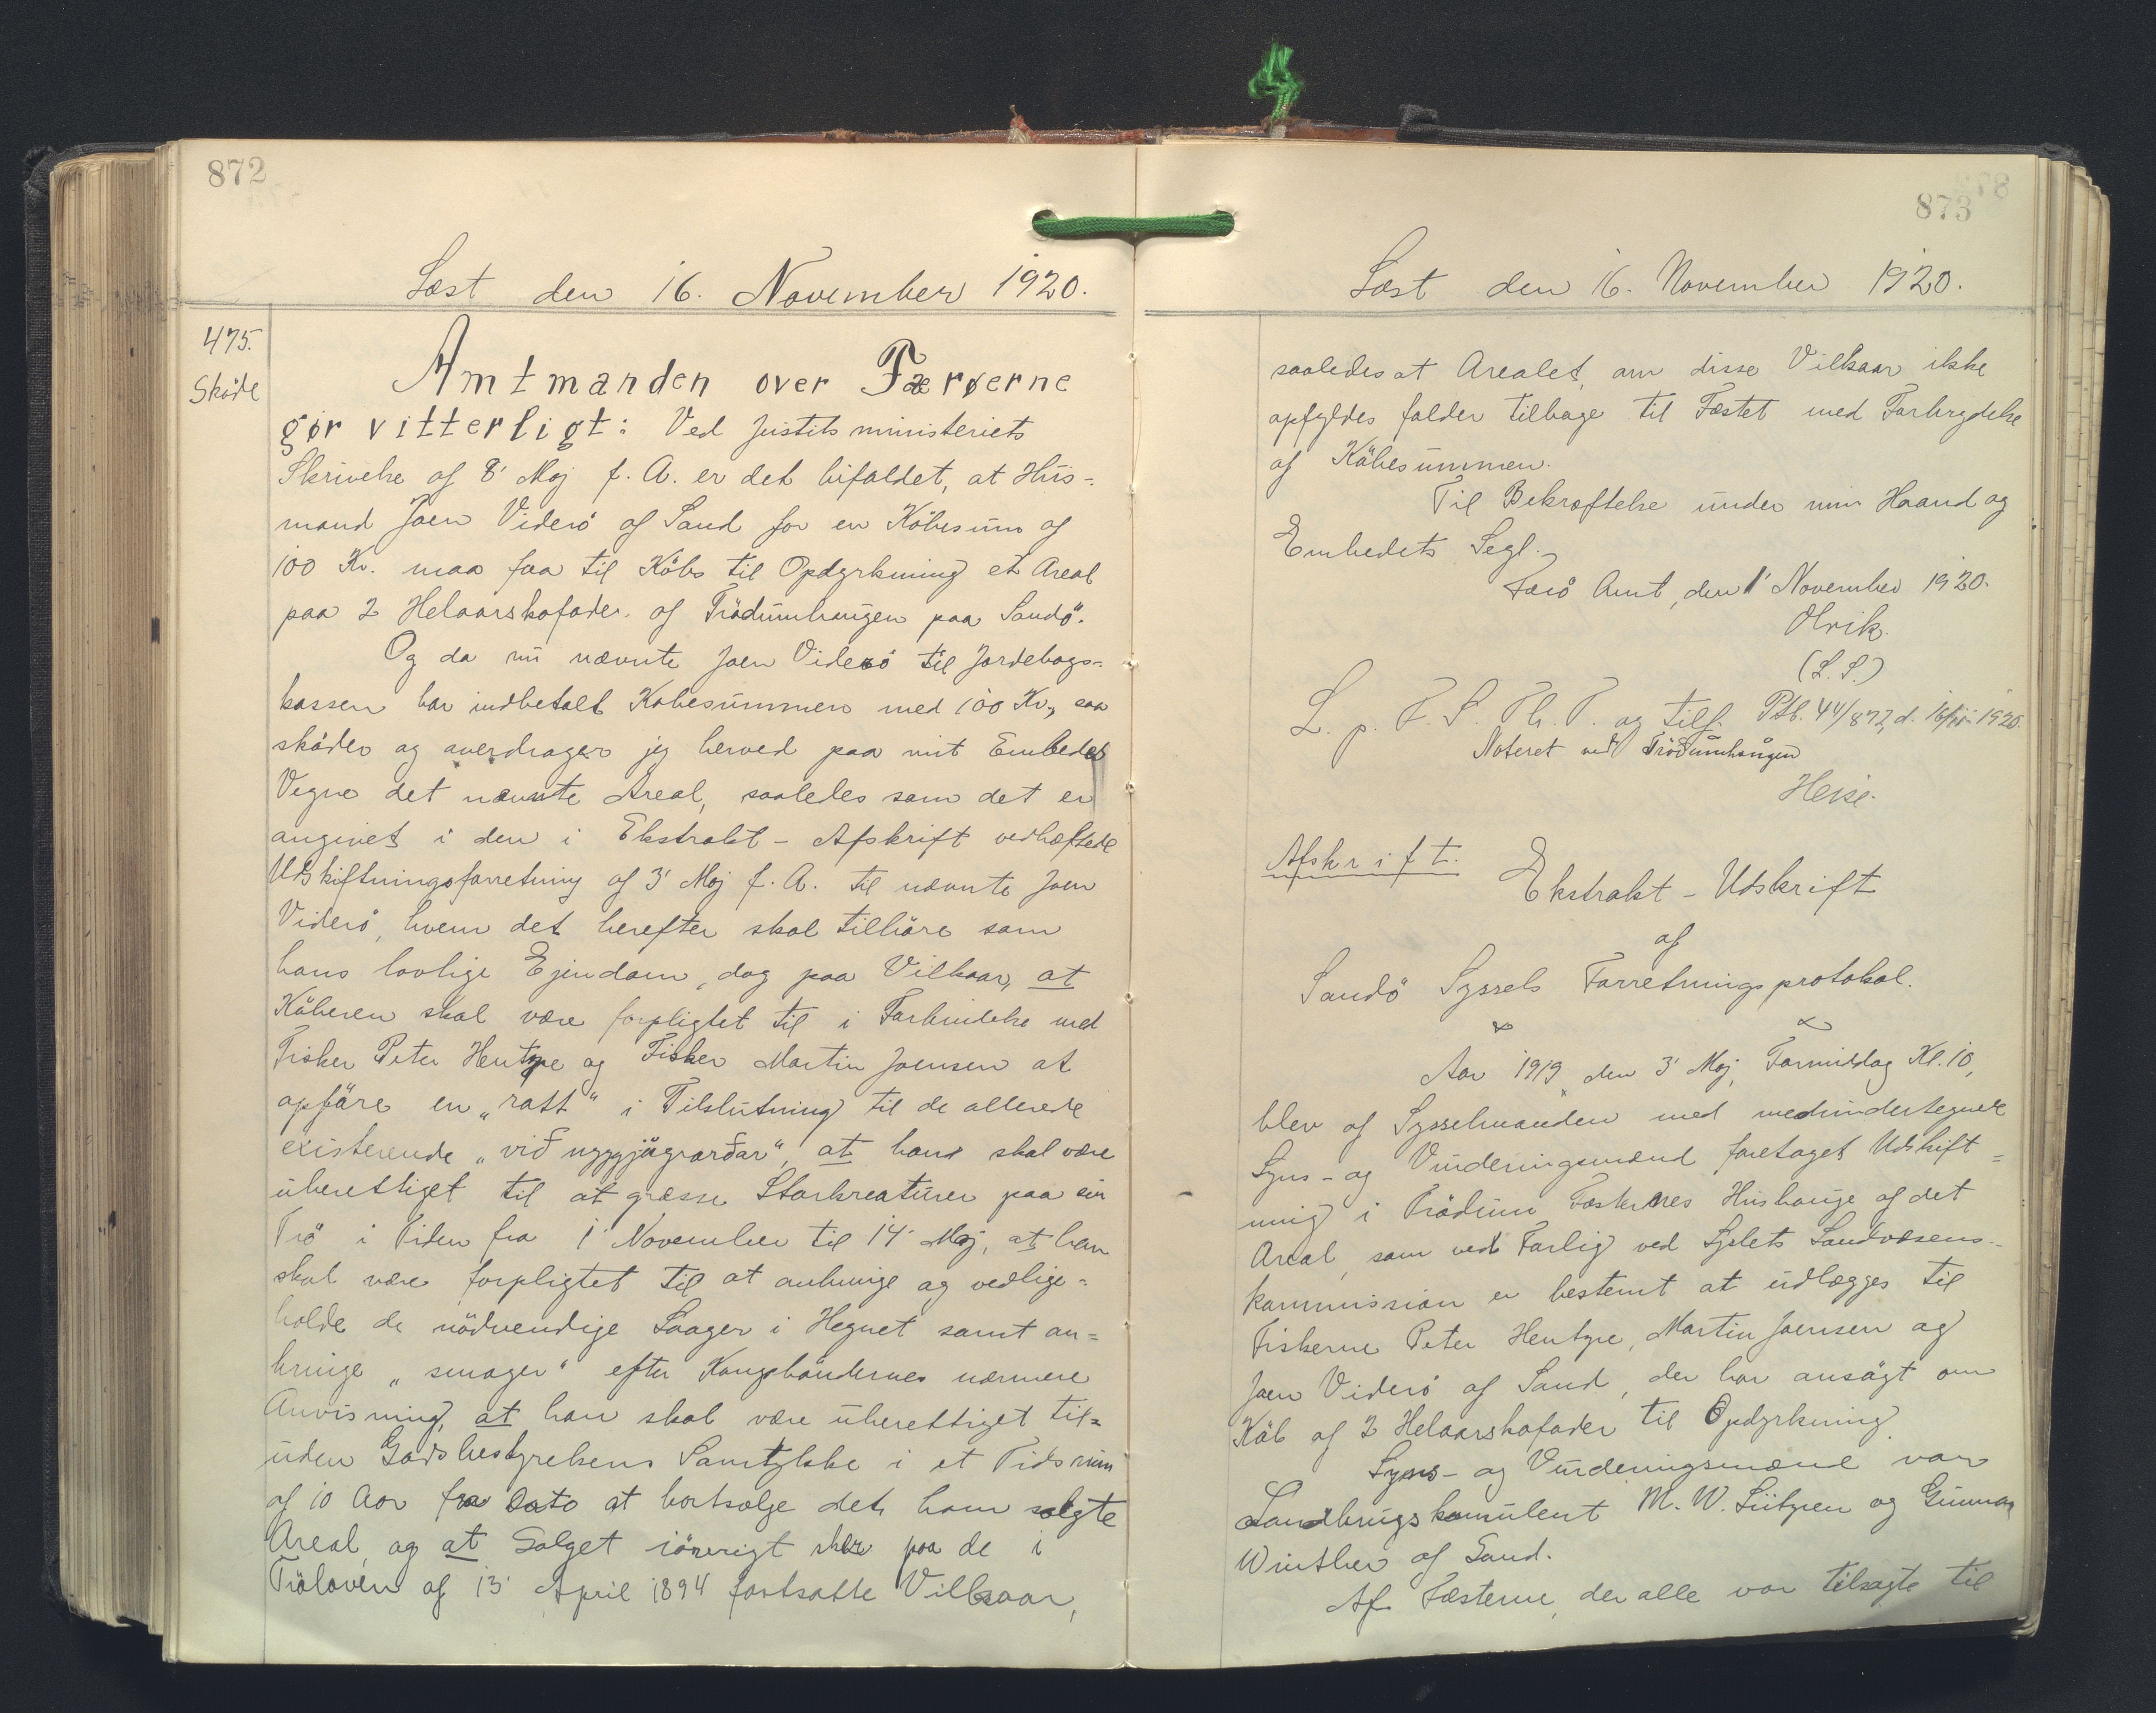 872
Læst den 16. November 1920.
475.
Sköde
Amtmanden over Færøerne
gør vitterligt: Ved Justitsministeriets
Skrivelse af 8' Maj f. A. er det bifaldet, at Hus-
mand Joen Viderö af Sand for en Köbesum af
100 Kr. maa faa til Köbs til Opdyrkning et Areal
paa 2 Helaarskofoder af Trödumhaugen paa Sandö.
Og da nu nævnte Joen Viderö til Jordebogs-
kassen har indbetalt Köbesummen med 100 Kr., saa
sköder og overdrager jeg herved paa mit Embeds
Vegne det nævnte Areal, saaledes som det er
angivet i den i Ekstrakt-Afskrift vedhæftede
Udskiftningsforretning af 3' Maj f. A. til nævnte Joen
Viderö, hvem det herefter skal tilhöre som
hans lovlige Ejendom, dog paa Vilkaar, at
Köberen skal være forpligtet til i Forbindelse med
Fisker Peter Hentze og Fisker Martin Joensen at
opföre en "rátt" i Tilslutning til de allerede
existerende "við nyggjågarðar", at han skal være
uberettiget til at græsse Storkreaturer paa sin
Trö i Tiden fra 1' November til 14' Maj, at han
skal være forpligtet til at anbringe og vedlige=
holde de nödvendige Laager i Hegnet samt an=
bringe "smoger" efter Kongsböndernes nærmere
Anvisning, at han skal være uberettiget til=
uden Godsbestyrelsens Samtykke i et Tidsrum
af 10 Aar fra Dato at bortsælge det ham solgte
Areal, og at Salget iövrigt sker paa de i
Tröloven af 13' April 1894 fastsatte Vilkaar,
873
Læst den 16. November 1920.
saaledes at Arealet, om disse Vilkaar ikke
opfyldes falder tilbage til Fæstet med Forbrydelse
af Köbesummen.
Til Bekræftelse under min Haand og
Embedets Segl.
Færö Amt, den 1' November 1920.
Olrik.
(L. S.)
L. p. F. S. Th. T. og tilf. Ptb. 44/872, d. 16/11 1920.
Noteret ved Trödumhaugen
Heise.
Afskrift.
Ekstrakt-Udskrift
af
Sandö Syssels Forretningsprotokol.
Aar 1919, den 3' Maj, Formiddag Kl. 10,
blev af Sysselmanden med medundertegnede
Syns- og Vurderingsmænd foretaget Udskift=
ning i Trödum Fæsternes Hushauge af det
Areal, som ved Forlig ved Syslets Landvæsens-
kommission er bestemt at udlægges til
Fiskerne Peter Hentze, Martin Joensen og
Joen Viderö af Sand, der har ansögt om
Köb af 2 Helaarskofoder til Opdyrkning.
Syns- og Vurderingsmænd var
Landbrugskonsulent M. W. Lützen og Gunnar
Winther af Sand.
Af Fæsterne, der alle var tilsagte til